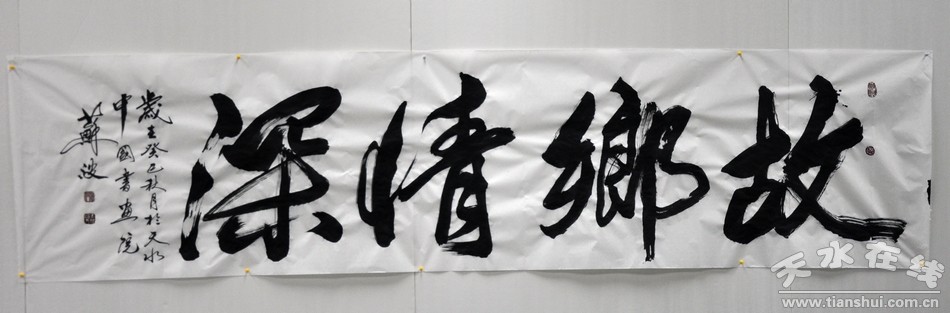 故鄉情深
歲在癸巳秋月於天水
中國書畫院
蘇波
天水在线
www.tianshui.com.cn